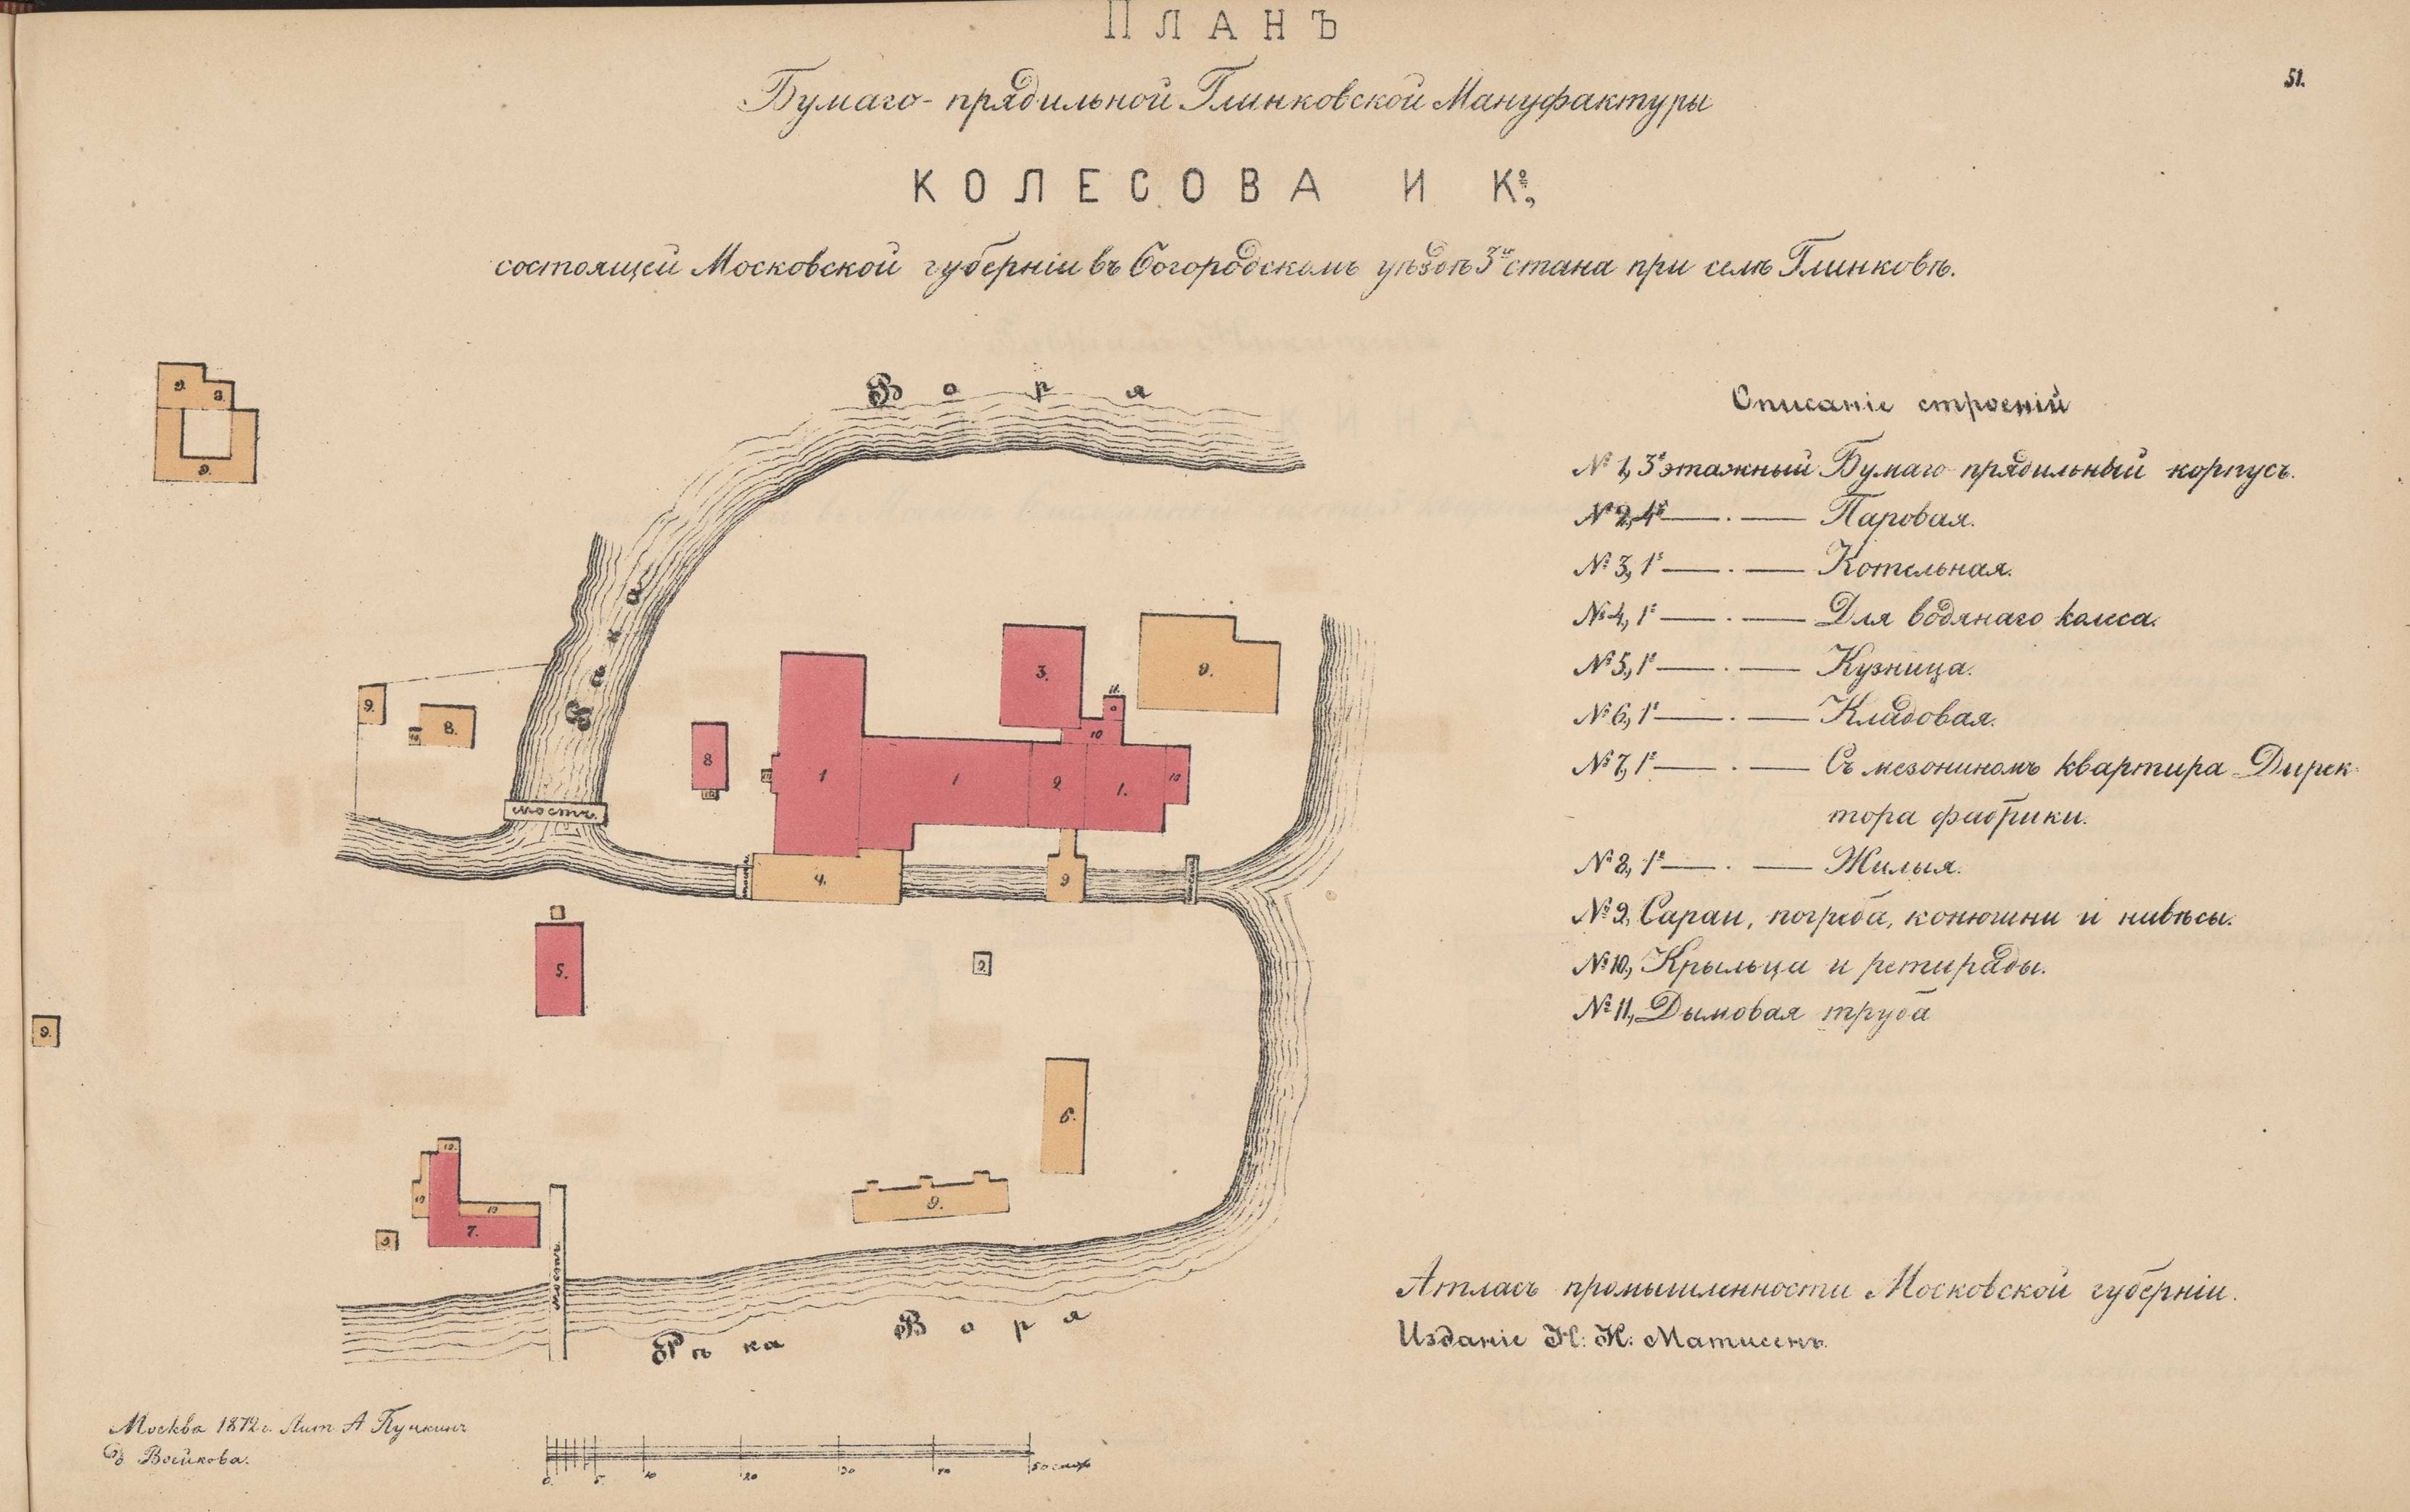 ПЛАНЪ
51.
Бумаго-прядильной Глинковской Мануфактуры
КОЛЕСОВА И Кº,
состоящей Московской губерніи въ Богородскомъ уѣздѣ 3го стана при селѣ Глинковѣ.
Воря
Описаніе строеній
№ 1, 3х этажный Бумаго прядильный корпусъ.
№ 2, 4х — . — Паровая.
№ 3, 1º — . — Котельная.
№ 4, 1º — . — Для водянаго колеса.
№ 5, 1º — . — Кузница.
№ 6, 1º — . — Кладовая.
№ 7, 1º — . — Съ мезониномъ квартира Дирек-
тора фабрики.
№ 8, 1º — . — Жилыя.
№ 9, Сараи, погреба, конюшни и навѣсы.
№ 10, Крыльца и ретирады.
№ 11, Дымовая труба
9.
9.
9.
9.
8.
10
8
10
10
1
1
2
1.
10
10
11.
3.
9.
мостъ
4.
9
5.
9.
9.
6.
9.
10.
10
10
7.
9
мостъ
Рѣка Воря
Атласъ промышленности Московской губерніи.
Изданіе Н. К. Матисенъ.
Москва 1872 г. Лит. А Пучкинъ
Д. Воейкова.
0. 5. 10 20 30 40 50 саж